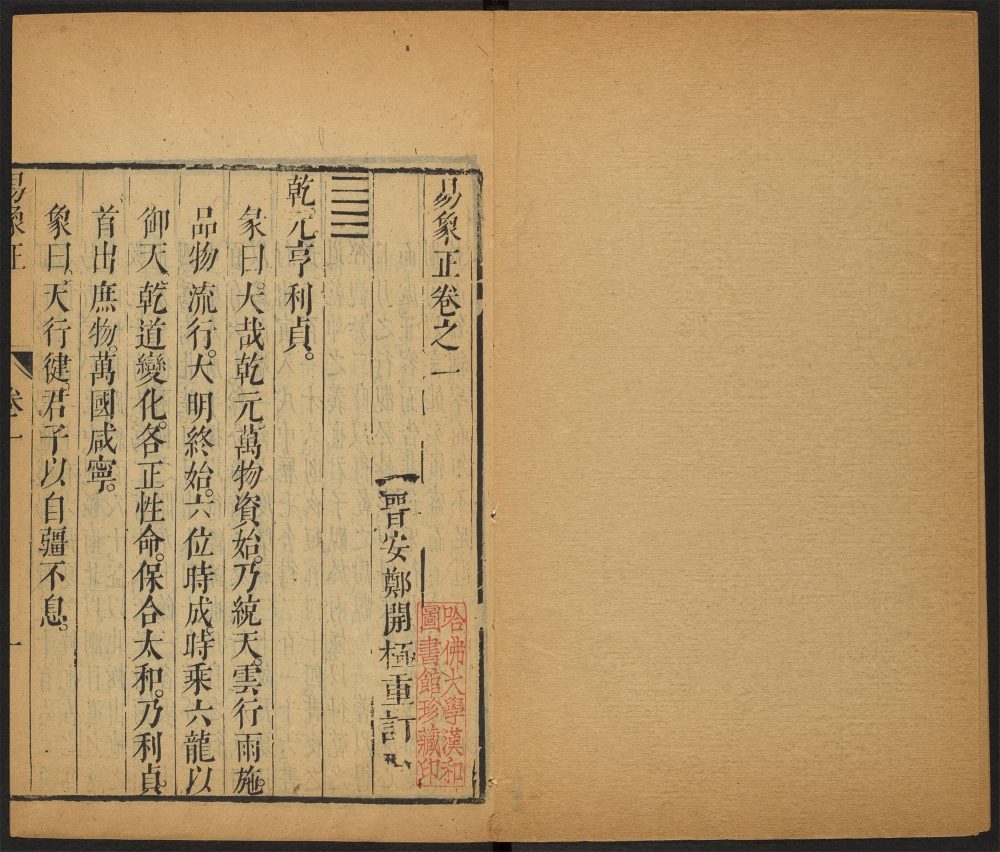 易象正卷之一
晉安鄭開極重訂
哈佛大學漢和
圖書館珍藏印
乾元亨利貞。
彖曰。大哉乾元。萬物資始。乃統天。雲行雨施。
品物流行。大明終始。六位時成。時乘六龍以
御天。乾道變化。各正性命。保合太和。乃利貞。
首出庶物。萬國咸寧。
象曰。天行健。君子以自彊不息。
易象正
卷一
一